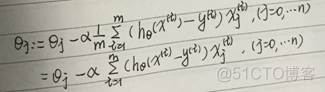 θj := θj - α 1/m Σ_{i=1}^{m} (hθ(x^(i)) - y^(i)) xj^(i), (j=0,…n)
= θj - α Σ_{i=1}^{m} (hθ(x^(i) - y^(i)) xj^(i), (j=0,…n)
@51CTO博客